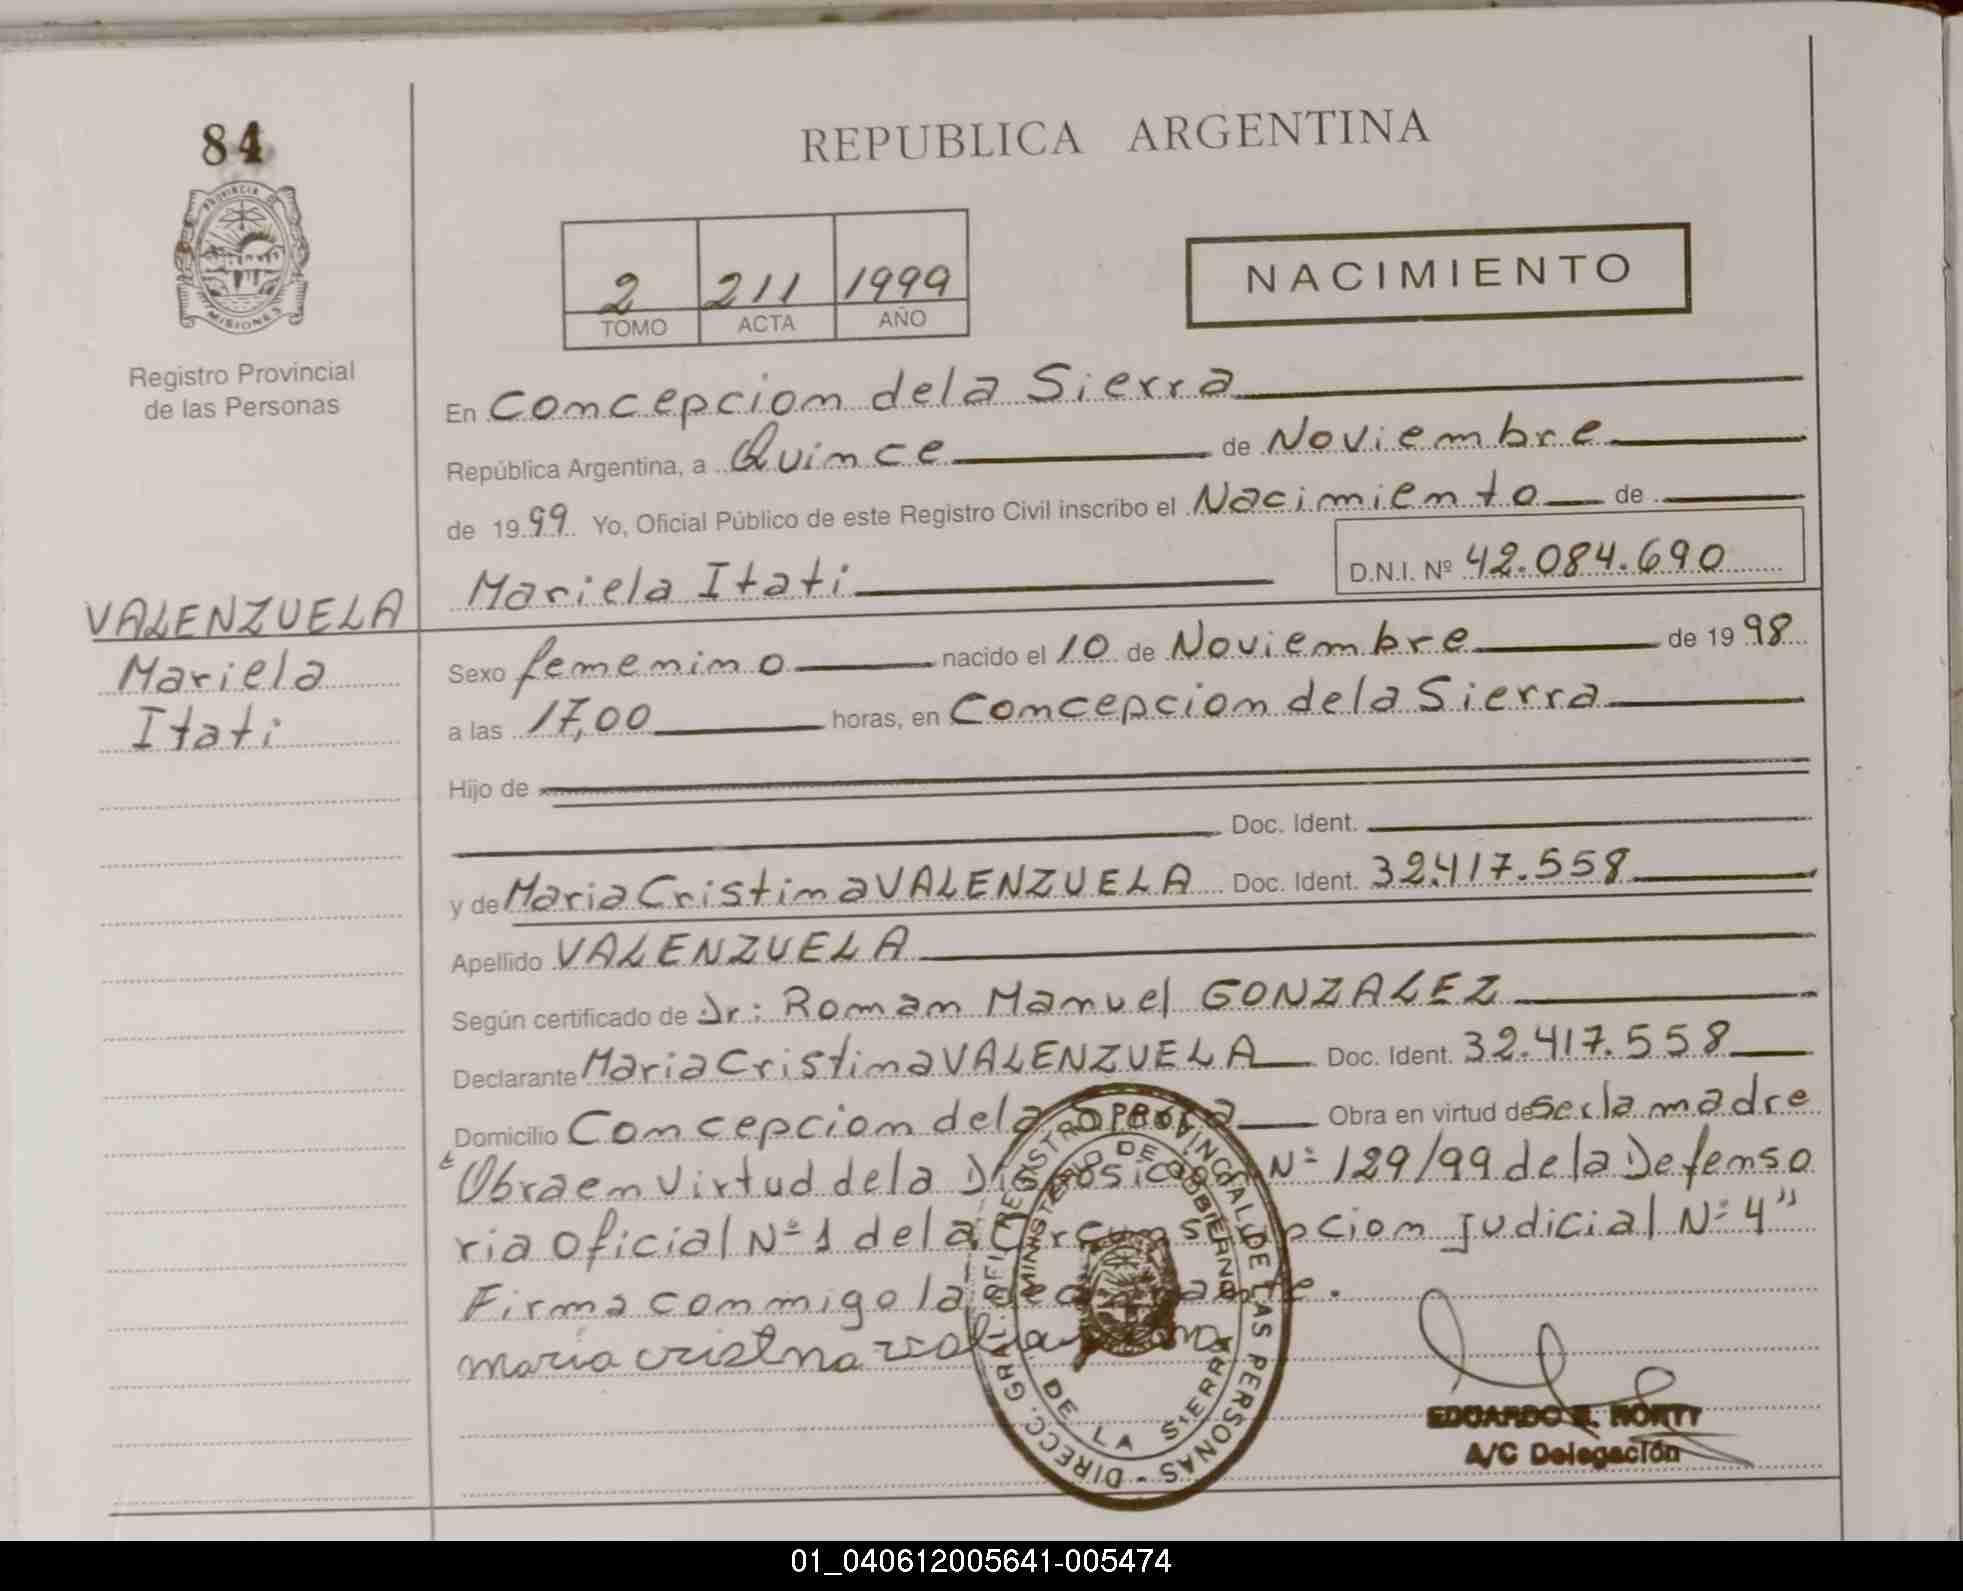 84
REPUBLICA ARGENTINA
PROVINCIA DE
MISIONES
Registro Provincial
de las Personas
2 211 1999
TOMO ACTA AÑO
NACIMIENTO
En Concepcion de la Sierra
República Argentina, a Quince de Noviembre
de 1999 Yo, Oficial Público de este Registro Civil inscribo el Nacimiento de
Mariela Itati D.N.I. Nº 42.084.690
VALENZUELA
Mariela
Itati
Sexo femenino nacido el 10 de Noviembre de 1998
a las 17,00 horas, en Concepcion de la Sierra
Hijo de
Doc. Ident.
y de Maria Cristina VALENZUELA Doc. Ident. 32.417.558
Apellido VALENZUELA
Según certificado de Dr: Roman Manuel GONZALEZ
Declarante Maria Cristina VALENZUELA Doc. Ident. 32.417.558
Domicilio Concepcion de la Sierra Obra en virtud de Ser la madre
"Obra en virtud de la Disposicion Nº 129/99 de la Defenso
ria oficial Nº 1 de la Circunscripcion judicial Nº 4"
Firma conmigo la declarante.
maria cristna
DIRECC. GRAL. DEL REGISTRO PROVINCIAL DE LAS PERSONAS
MINISTERIO DE GOBIERNO
DE LA SIERRA
EDUARDO
A/C Delegación
01_040612005641-005474